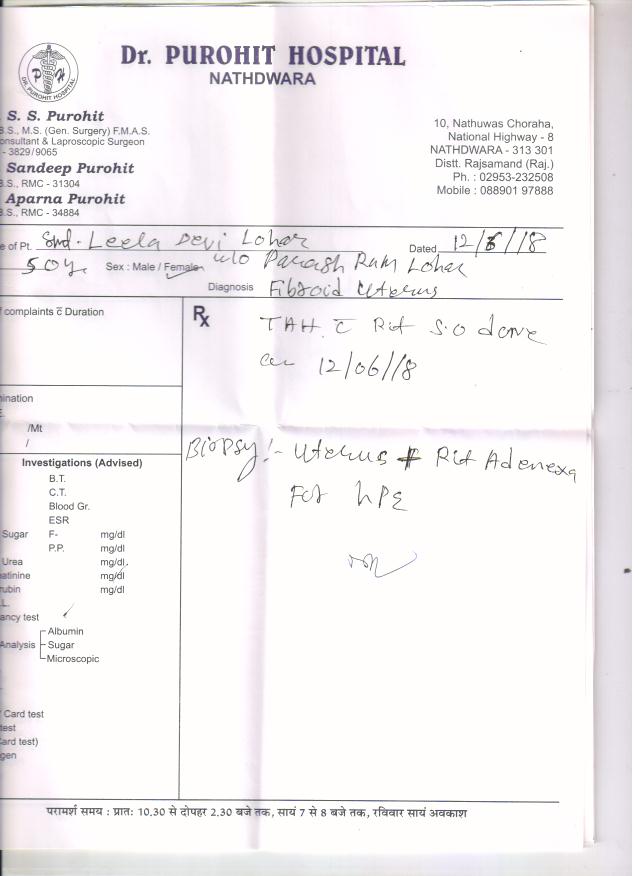 Dr. PUROHIT HOSPITAL
NATHDWARA
P H
DR. PUROHIT HOSPITAL
S. S. Purohit
B.S., M.S. (Gen. Surgery) F.M.A.S.
onsultant & Laproscopic Surgeon
- 3829/9065
Sandeep Purohit
B.S., RMC - 31304
Aparna Purohit
B.S., RMC - 34884
10, Nathuwas Choraha,
National Highway - 8
NATHDWARA - 313 301
Distt. Rajsamand (Raj.)
Ph. : 02953-232508
Mobile : 088901 97888
e of Pt. Smt. Leela Devi Lohar Dated 12/6/18
50y. Sex : Male / Female w/o Parash Ram Lohar
Diagnosis Fibroid Uterus
complaints c̄ Duration
Rx
TAH c̄ Rit S.O done
on 12/06/18
mination
E.
/Mt
/
Biopsy :- Uterus + Rit Adenexa
For HPE
Investigations (Advised)
B.T.
C.T.
Blood Gr.
ESR
Sugar F- mg/dl
P.P. mg/dl
Urea mg/dl
atinine mg/dl
rubin mg/dl
.L.
ancy test
Albumin
Analysis Sugar
Microscopic
Card test
test
ard test)
gen
परामर्श समय : प्रातः 10.30 से दोपहर 2.30 बजे तक, सायं 7 से 8 बजे तक, रविवार सायं अवकाश